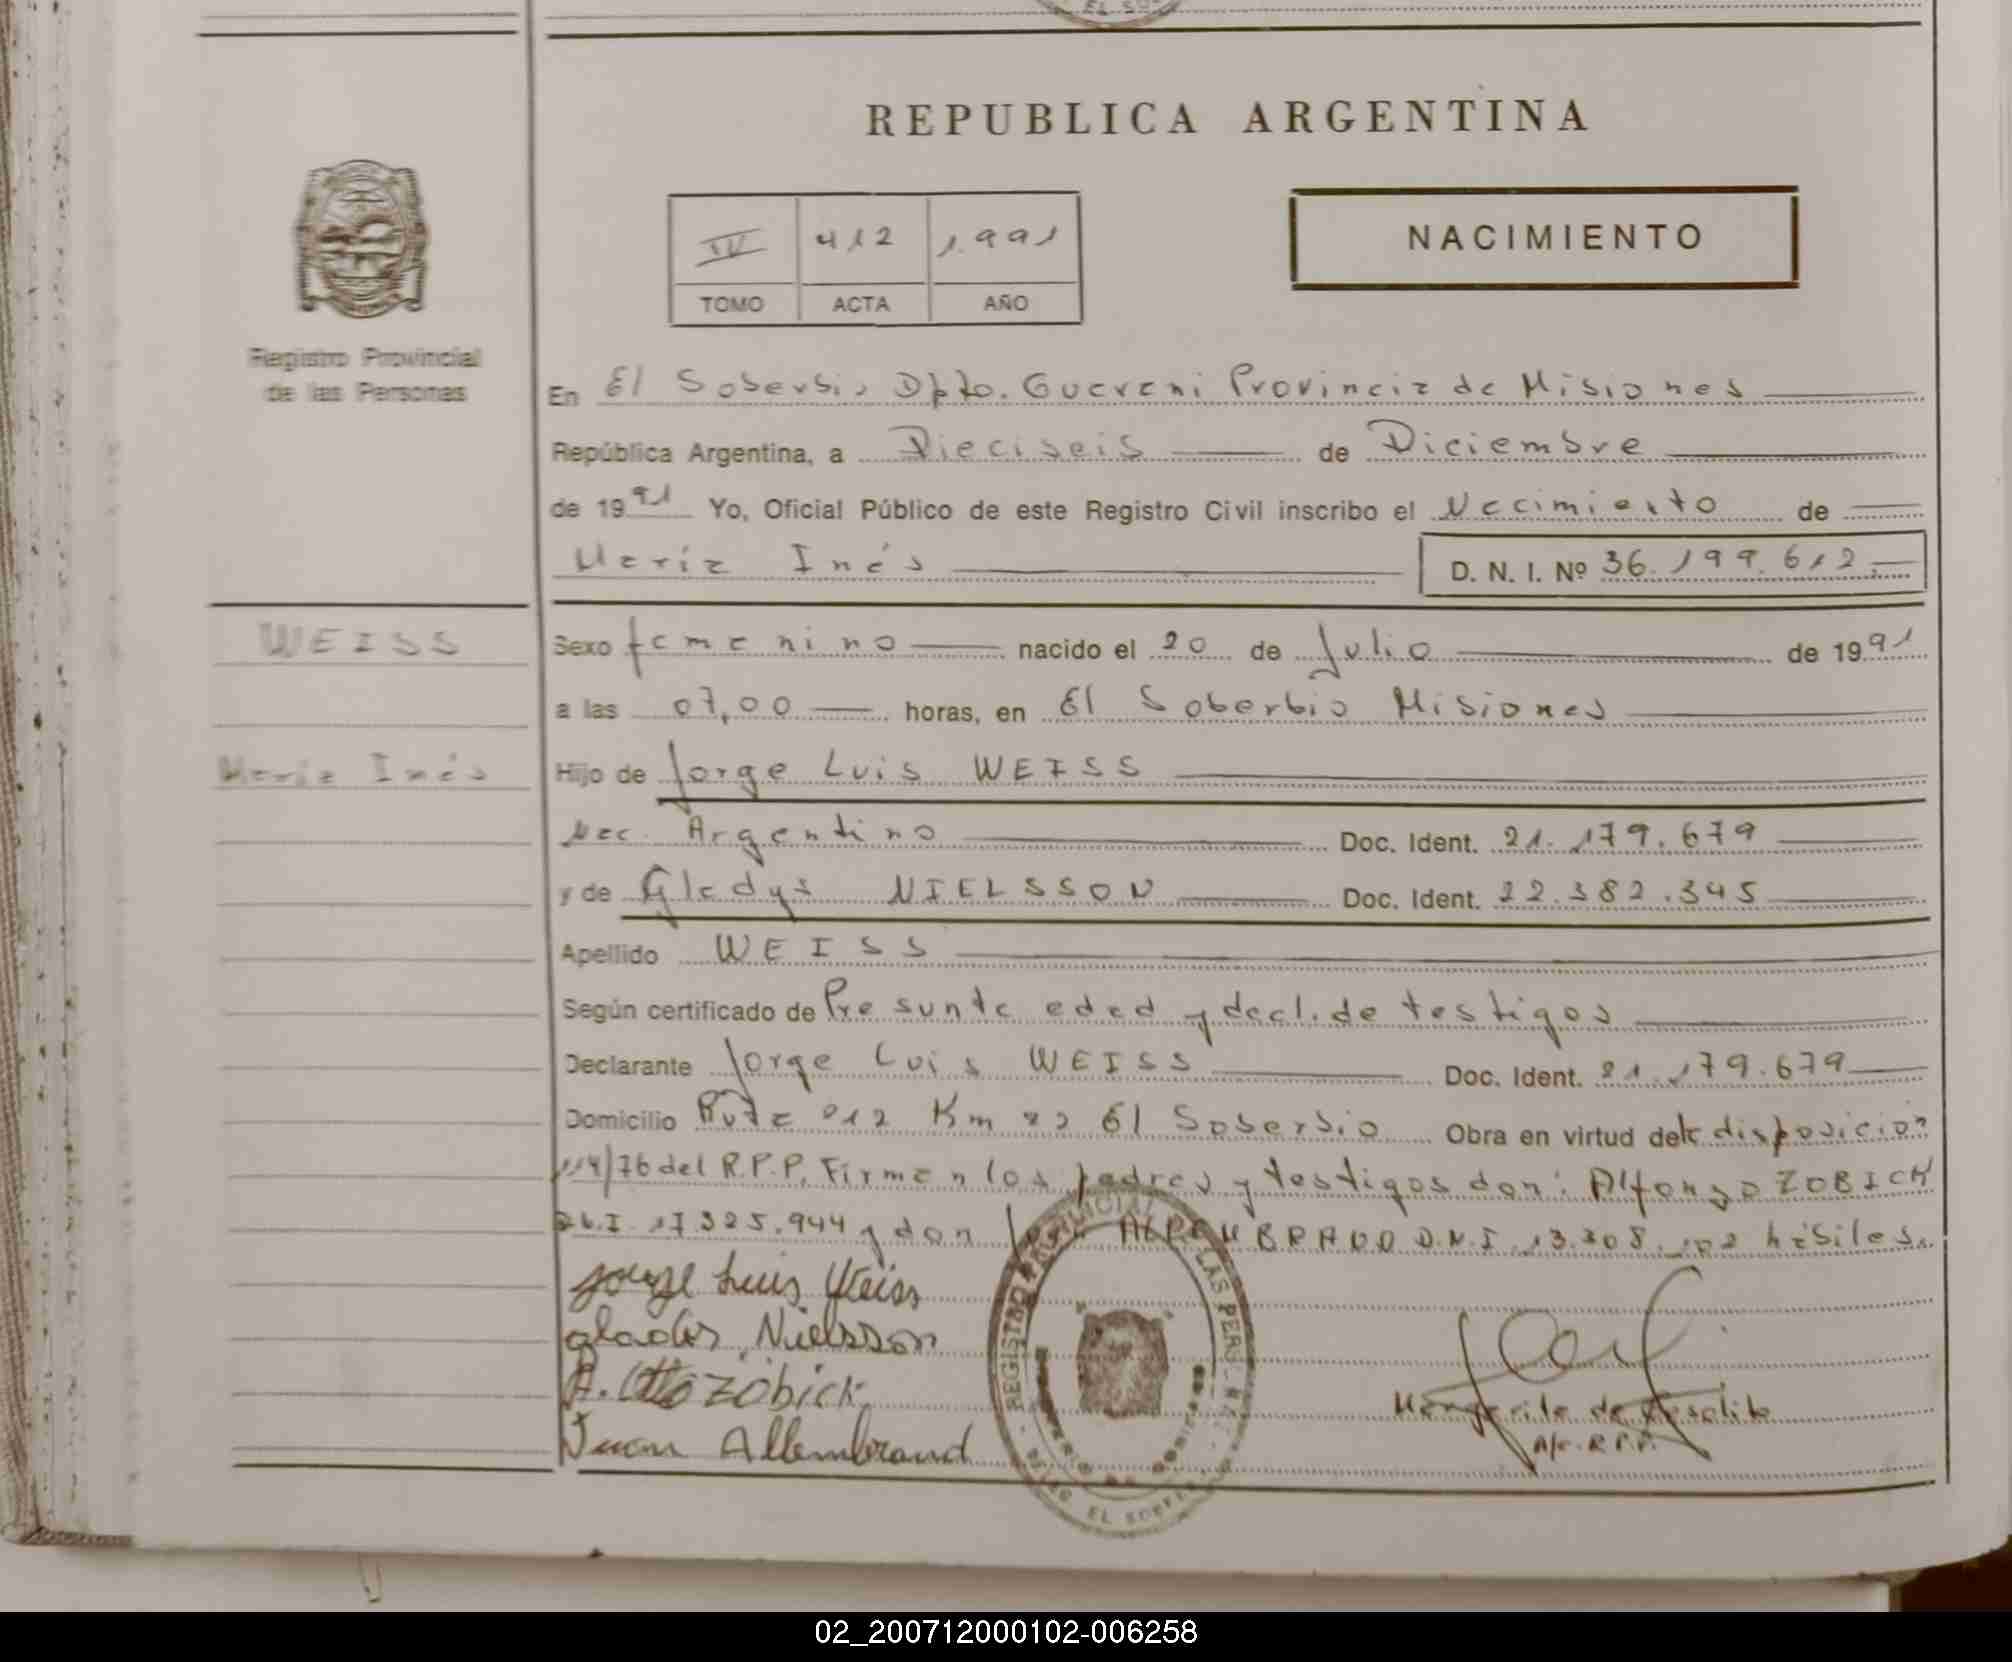 REPUBLICA ARGENTINA
IV 412 1.991
TOMO ACTA AÑO
NACIMIENTO
Registro Provincial
de las Personas
En El Soberbio Dpto. Guarani Provincia de Misiones
República Argentina, a Dieciseis de Diciembre
de 1991 Yo, Oficial Público de este Registro Civil inscribo el Nacimiento de
María Inés D. N. I. Nº 36.199.612.
WEISS
María Inés
Sexo femenino nacido el 20 de Julio de 1991
a las 07,00 horas, en El Soberbio Misiones
Hijo de Jorge Luis WEISS
Nac. Argentino Doc. Ident. 21.179.679
y de Gladys NIELSSON Doc. Ident. 22.382.345
Apellido WEISS
Según certificado de Presunta edad y decl. de testigos
Declarante Jorge Luis WEISS Doc. Ident. 21.179.679
Domicilio Ruta 212 Km El Soberbio Obra en virtud de la disposición
114/76 del R.P.P. Firman los padres y testigos don: Alfonso ZOBICK
17.325.944 y don D.N.I. 13.308. hábiles.
Jorge Luis Weiss
gladis Nielsson
A. Otto Zobick
Juan Allembrand
REGISTRO PROVINCIAL LAS PERS
EL SOBER
Margarita de
A/c. R.P.P.
02_200712000102-006258